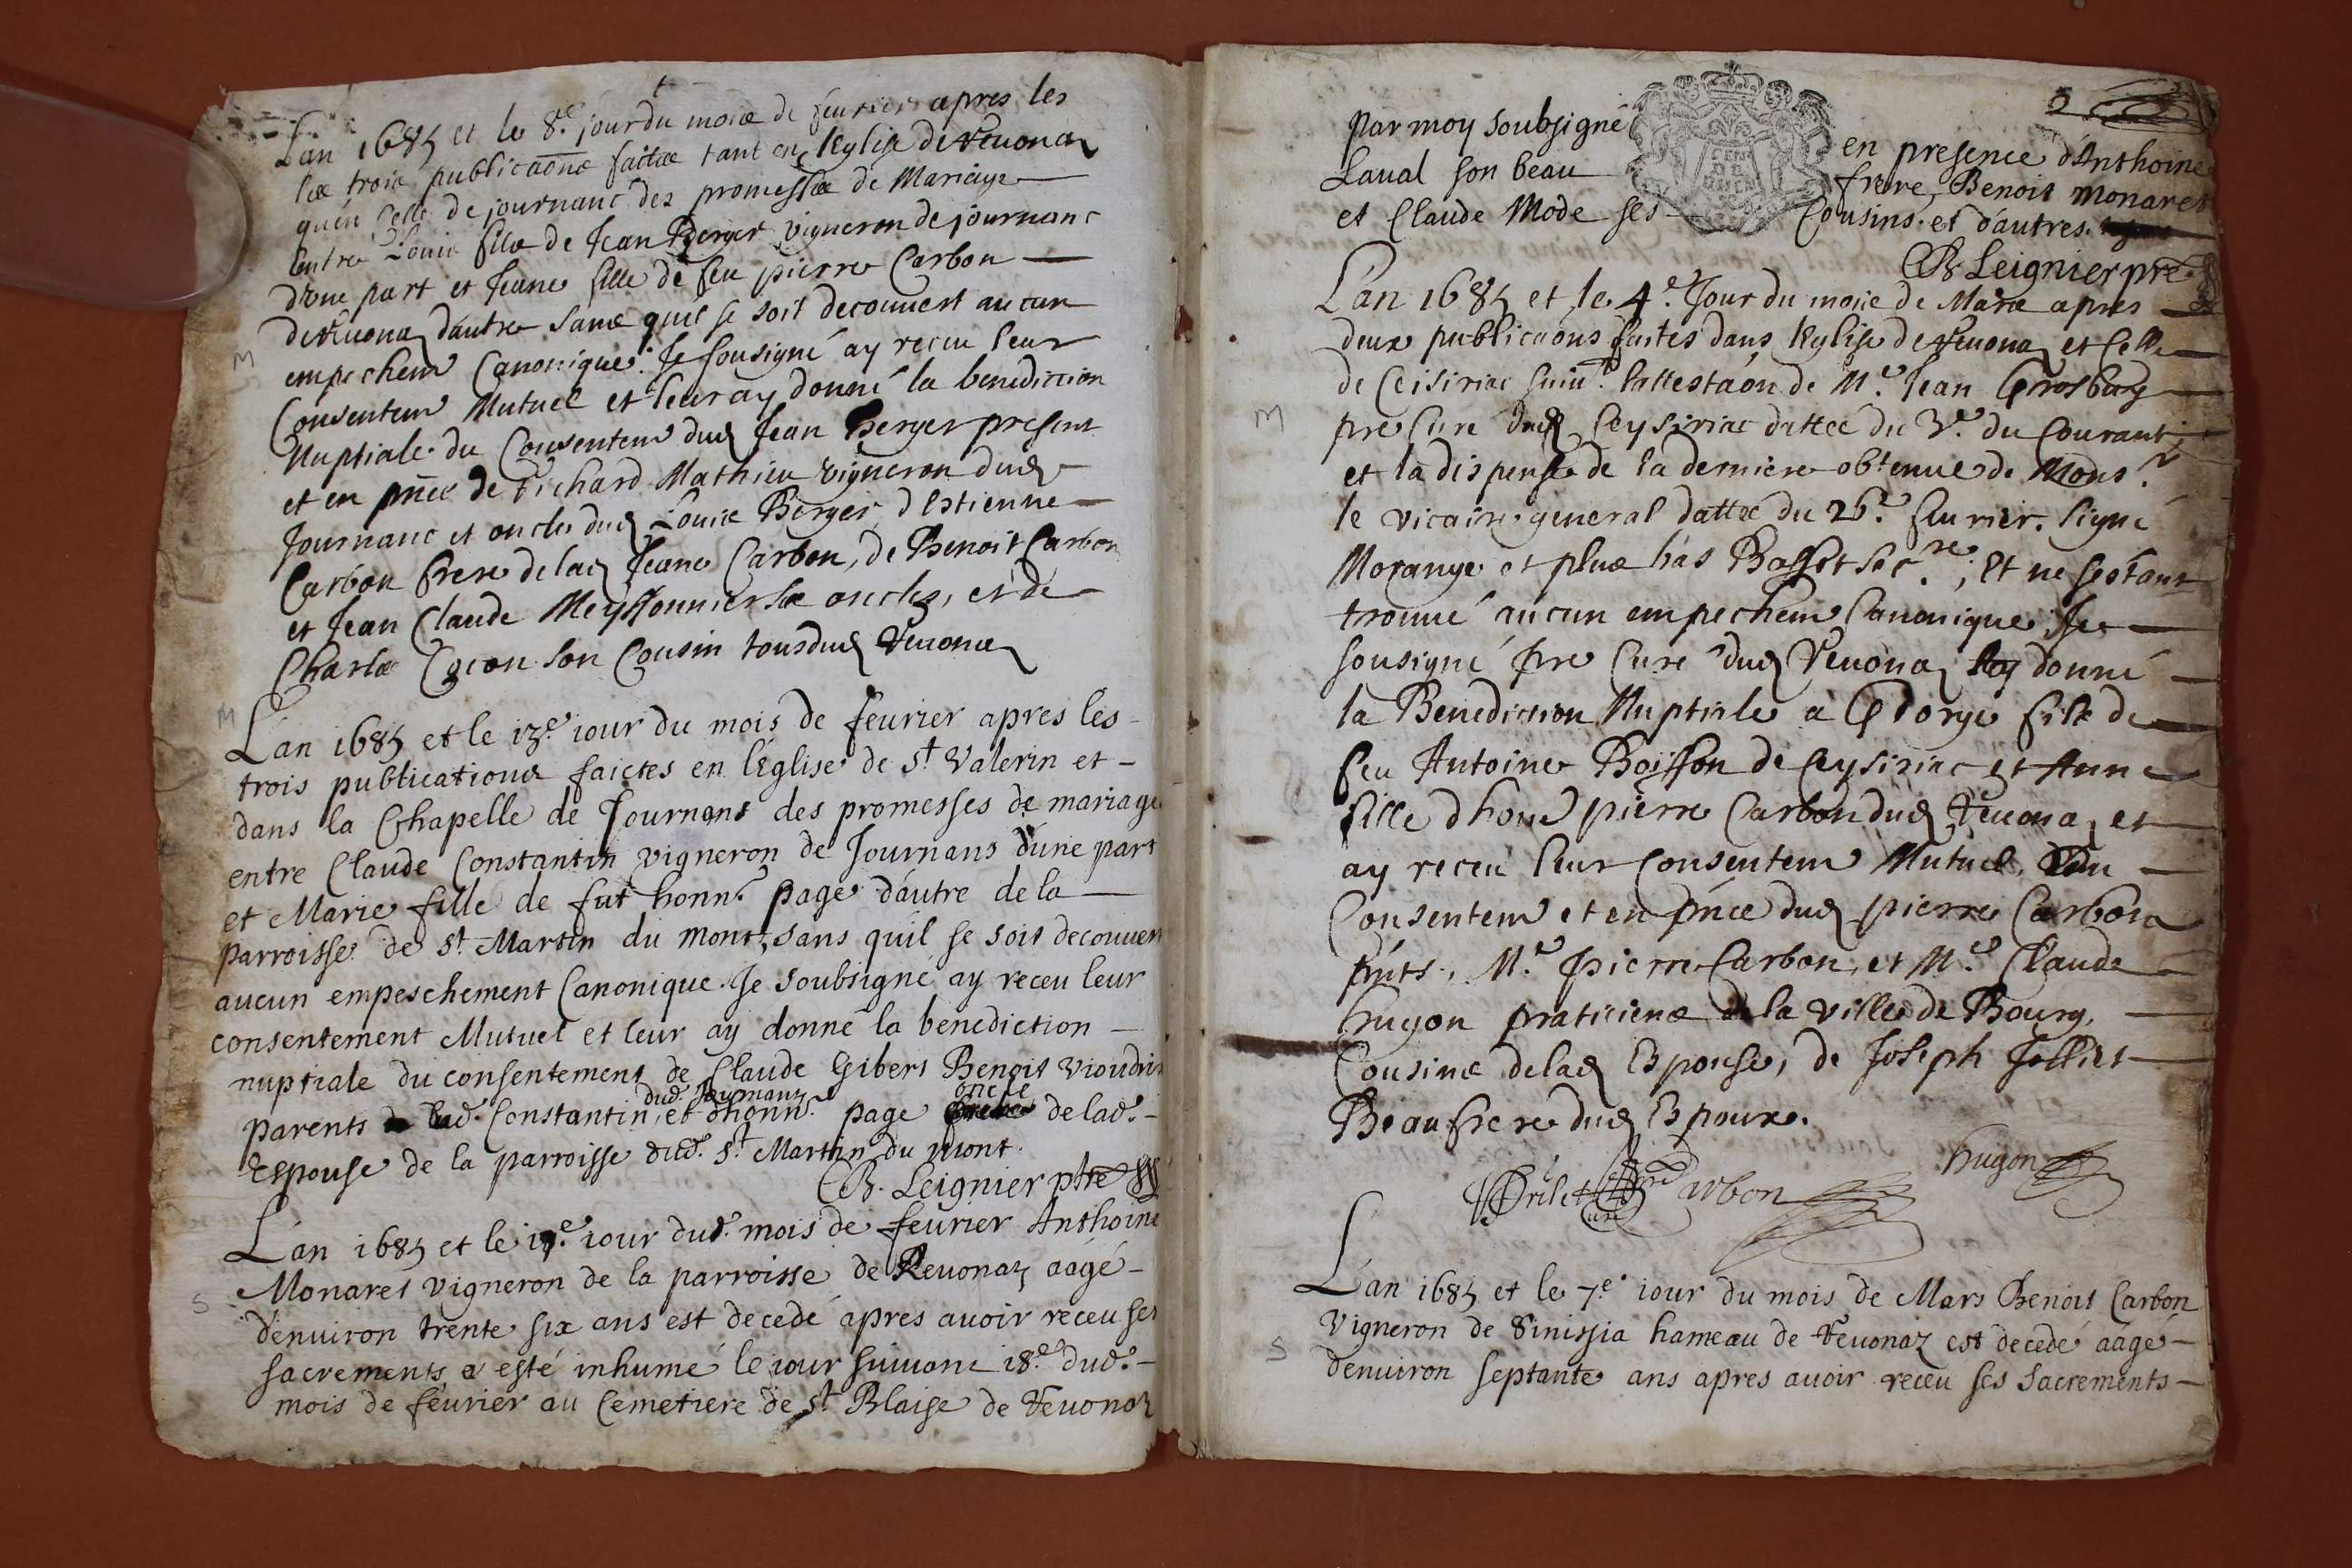 Lan 1685 et le 8e. jour du mois de feurier apres les
les trois publicaons faites tant en leglise de Reuona
quen celle de journanc des promesses de Mariage
entre Louis fils de Jean Berger vigneron de journanc
dune part et Jeane fille de feu pierre Carbon
de Reuona dautre sans quil se soit decouuert aucun
empechem Canonique. Je sousigné ay receu leur
Consentem Mutuel et leur ay donné la benediction
Nuptiale. du Consentem dud Jean Berger present
et en pnce de Richard Mathieu vigneron dud
Journanc et oncle dud Louis Berger, d'Estienne
Carbon frere de lad Jeane Carbon, de Benoit Carbon
et Jean Claude Meyssonnier ses oncles, et de
Charles son Cousin tous dud Reuona
L'an 1685 et le 13e. iour du mois de feurier apres les
trois publications faictes en l'Eglise de St Valerin et
dans la Chapelle de Journans des promesses de mariage
entre Claude Constantin vigneron de Journans d'une part
et Marie fille de fut honn. page d'autre de la
parroisse de St. Martin du mont, sans quil se soit decouuert
aucun empeschement Canonique. Je soubsigné ay receu leur
consentement Mutuel et leur ay donné la benediction
nuptiale du consentement de Claude Gibert Benoit vioudrin
dud. Journans oncle
parents lad. Constantin, et d'honn. page de lad.
Espouse de la parroisse dud. St. Martin du mont.
B. Leignier ptre
L'an 1685 et le 17e. iour dud. mois de feurier Anthoine
Monaret vigneron de la parroisse de Reuonaz aagé
d'enuiron trente six ans est decedé apres auoir receu ses
sacrements a esté inhumé le iour suiuant 18e. dud.
mois de feurier au Cemetiere de St Blaise de Reuonaz
5
par moy soubsigné en presence d'Anthoine
Laual son beau frere, Benoit monaret
et Claude Mode ses Cousins et d'autres.
B. Leignier pre
L'an 1685 et le 4e. Jour du mois de Mars apres
deux publicaons faites dans leglise de Reuona et celle
de Ceisiriac suiut. lattestaon de Me. Jean Grosburg
pre Curé dud Ceysiriac dattee du 3e. du Courant,
et la dispense de la derniere obtenue de Monsr.
le vicaire general dattee du 26e. feurier. signé
Morange et plus bas Basset Secre.; Et ne sestant
trouué aucun empechem Canonique, Je
sousigné pre Curé dud Reuona ay donné
la Benediction Nuptiale a George fils de
feu Antoine Boisson de Ceysiriac et Anne
fille d'hon pierre Carbon dud Reuona, et
ay receu leur Consentem Mutuel, du
Consentem et en pnce dud pierre Carbon
pnts, Me. pierre Carbon, et Me. Claude
hugon praticiens de la ville de Bourg,
Cousins de lad Espouse, de Joseph Jollies
Beaufrere dud Espoux.
hugon
Curé Carbon
L'an 1685 et le 7e. iour du mois de Mars Benoit Carbon
Vigneron de Sinissia hameau de Reuonaz est decedé aagé
denuiron septante ans apres auoir receu ses Sacrements
M
M
S
M
S